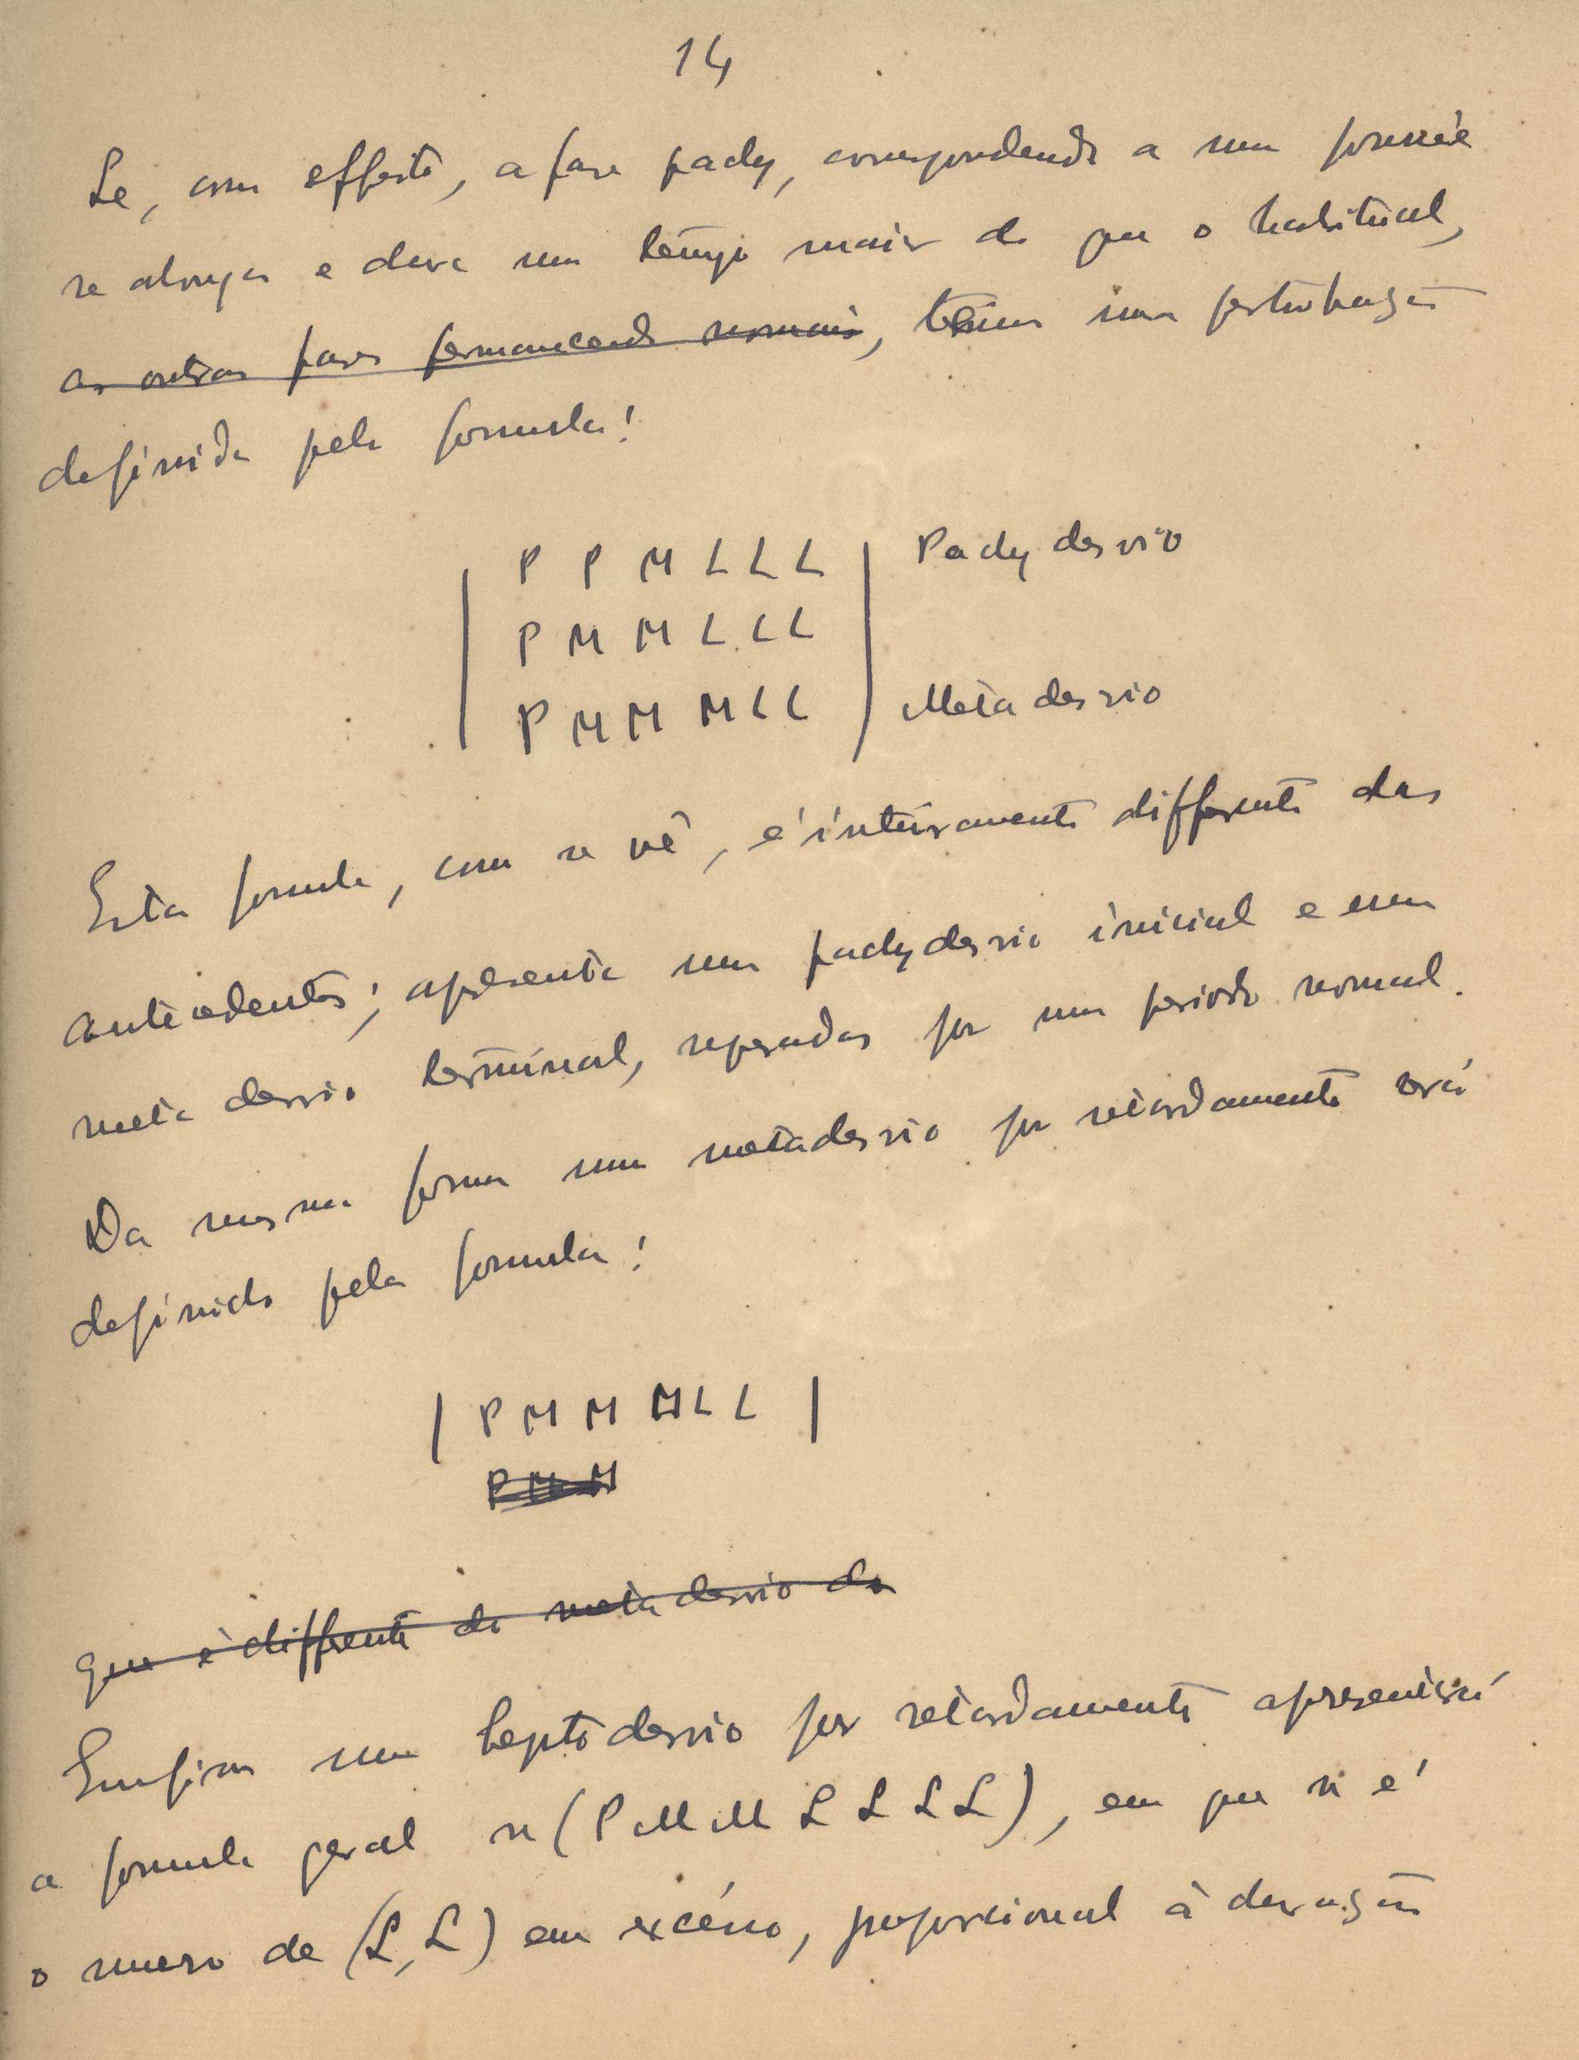 14
Se, com effeito, a fase pachy, correspondendo a um
se alonga e dura um tempo maior do que o habitual,
as outras fases permanecendo normais, temos uma perturbação
definida pela formula:
P P M L L L Pachy desvio
P M M L L L
P M M M L L Meta desvio
Esta formula, como se vê, é inteiramente differente das
antecedentes; apresenta um pachydesvio inicial e um
meta desvio terminal, separados por um periodo normal.
Da mesma forma um metadesvio por retardamento será
definido pela formula:
| P M M M L L |
P M M
que é differente do meta desvio do
Emfim um leptodesvio por retardamento apresentará
a formula geral n (P M M L L L L), em que n é
o numero de (L, L) em excésso, proporcional à duração